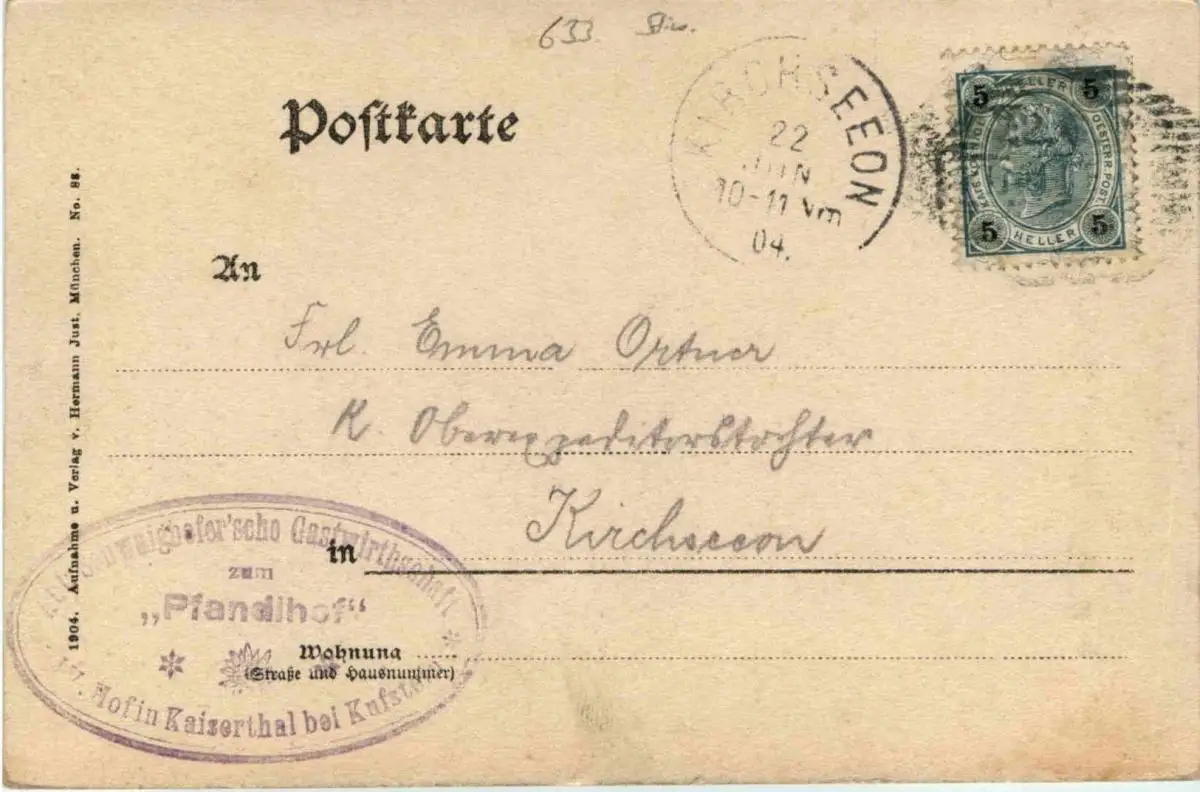 633
Postkarte
KIRCHSEEON
22
JUN
10-11 Vm
04.
5 HELLER 5
OESTERR. POST
5 HELLER 5
An
Frl. Emma Ortner
K. Oberexpeditorstochter
in Kirchseeon
Wohnung
(Straße und Hausnummer)
1904. Aufnahme u. Verlag v. Hermann Just, München. No. 88.
Schwaighofer'sche Gastwirthschaft
zum
„Pfandlhof“
Hof in Kaiserthal bei Kufstein